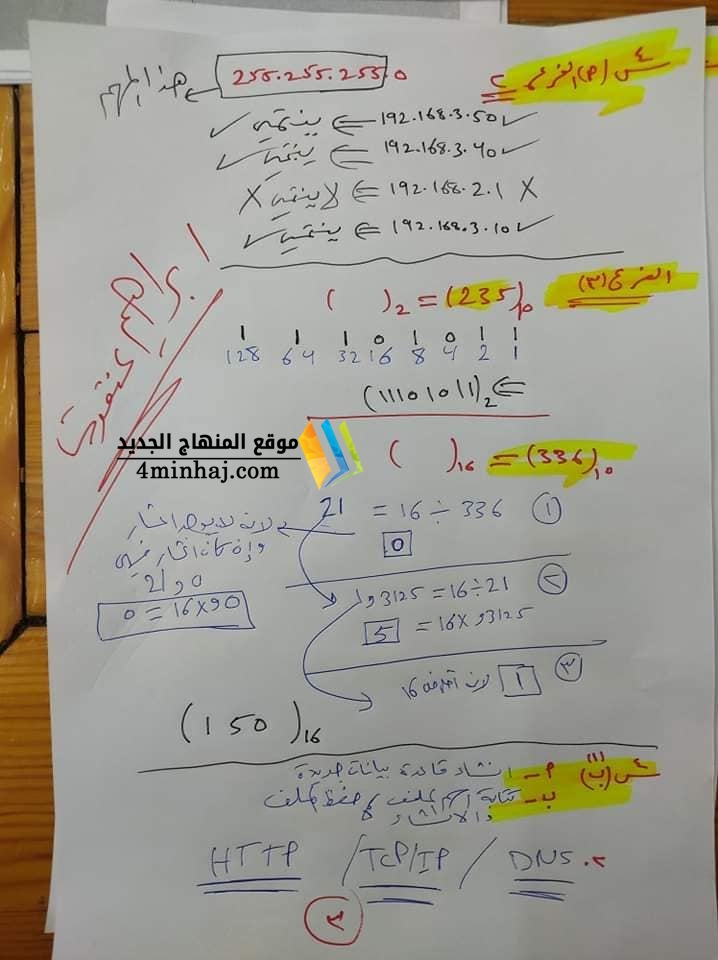 س٤ (م) الفرع ٢
255.255.255.0 ← هذا المهم
✓ 192.168.3.50 ⇐ ينتمي ✓
✓ 192.168.3.40 ⇐ ينتمي ✓
X 192.168.2.1 ⇐ لا ينتمي X
✓ 192.168.3.10 ⇐ ينتمي ✓
الفرع (٣)
(235)10 = ( )2
1 1 1 0 1 0 1 1
128 64 32 16 8 4 2 1
(11101011)2
موقع المنهاج الجديد
4minhaj.com
(336)10 = ( )16
① 336 ÷ 16 = 21
0
لانه لا يوجد اعشار
0 و 21
0 = 16 × 0و0
② 21 ÷ 16 = 1 و 3125
3125و × 16 = 5
③ 1 لانه 16
(150)16
س٤ (ب) (١)
م - انشاء قاعدة بيانات جديدة
ب - كتابة اسم الملف حفظ الملف
والانشاء
٢. DNS / TCP/IP / HTTP
٣